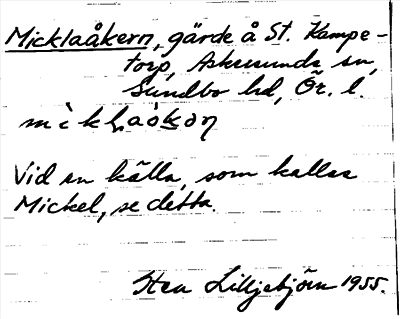 Micklaåkern, gärde å St. Kampe-
torp, Askersunds sn,
Sundbo hd, Ör. l.
Vid en källa, som kallas
Mickel, se detta.
Sten Lilljebjörn 1955.